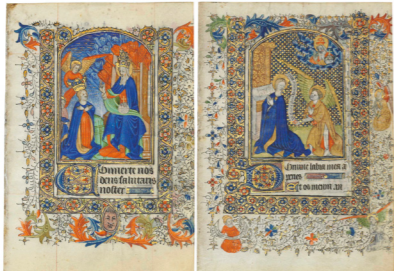 Conuerte nos
deus salutaris
noster
Domine labia mea a
peries
Et os meum an